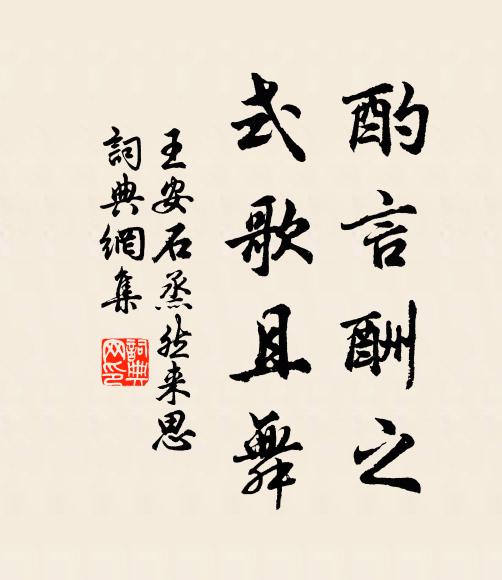 酌言酬之
式歌且舞
王安石烝然来思
詞典網集
詞典網印